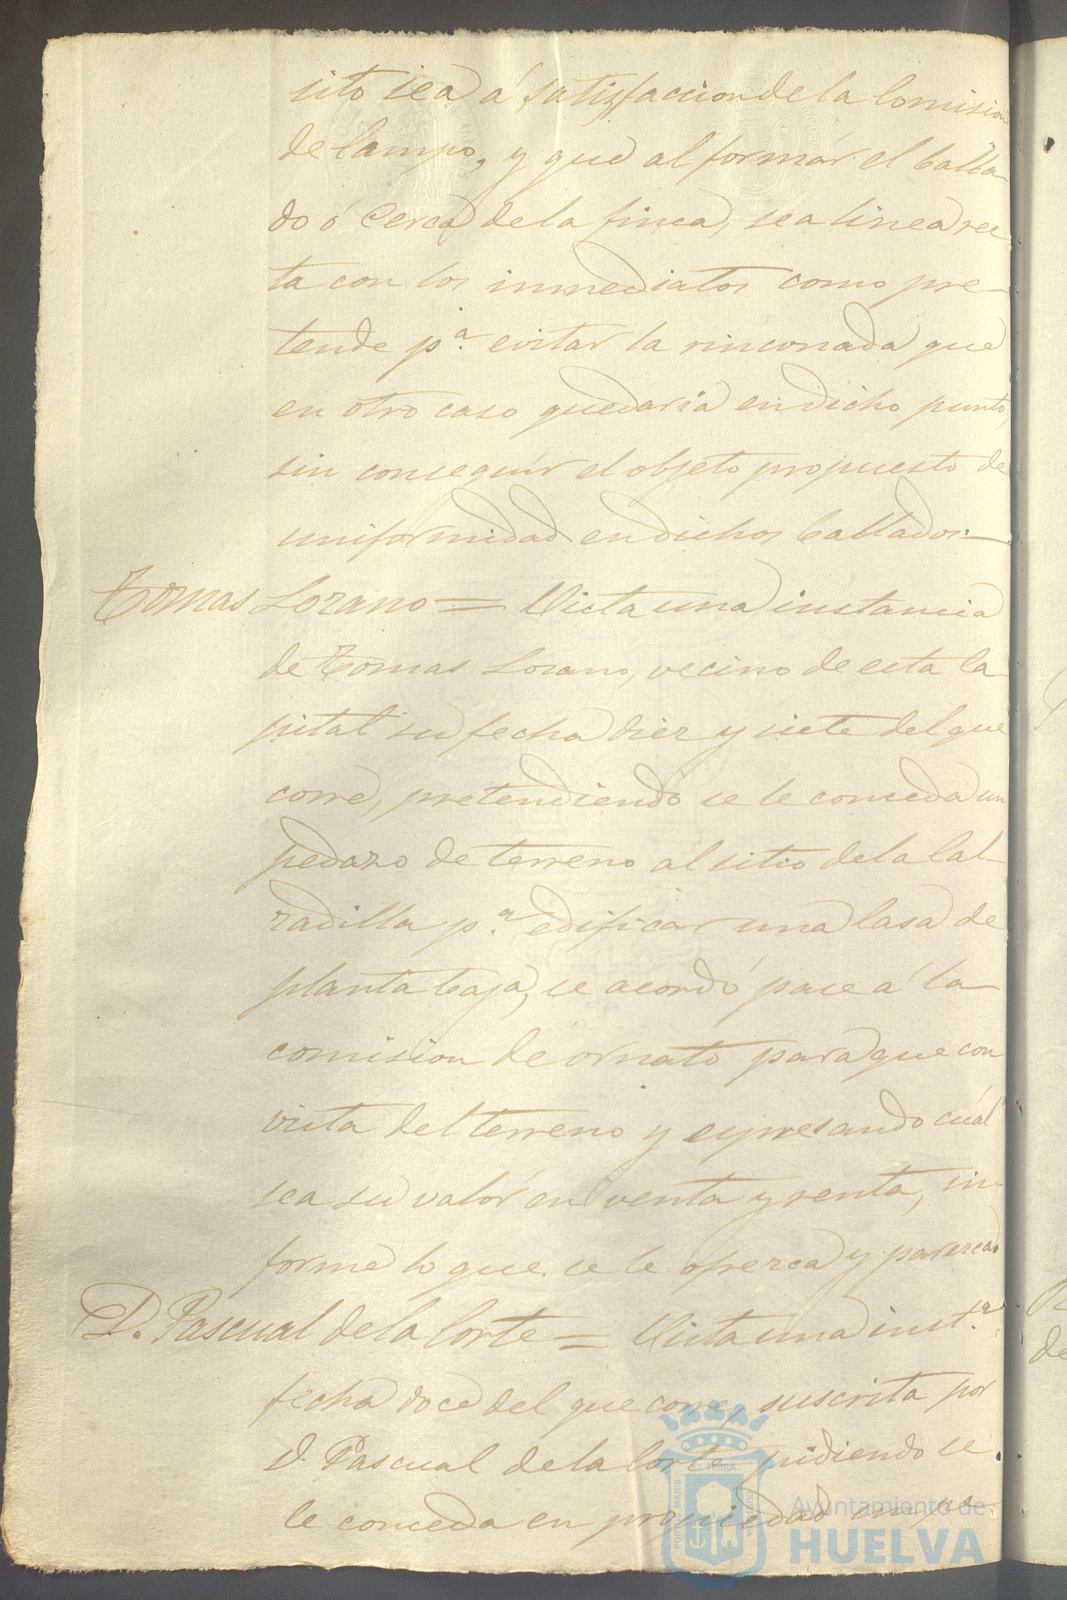 sito sea á satisfaccion de la Comision
de Campo, y que al formár el balla-
do ó Cerca de la finca, sea linea rec-
ta con los inmediatos como pre-
tende p.ª evitar la rinconada que
en otro caso quedaria en dicho punto,
sin conseguir el objeto propuesto de
uniformidad en dichos ballados.—
Tomas Lozano = Vista una instancia
de Tomas Lozano, vecino de esta Ca-
pital su fecha diez y siete del que
corre, pretendiendo se le conceda un
pedazo de terreno al sitio de la Cal-
zadilla p.ª edificar una Casa de
planta baja, se acordó pase á la
comision de órnato para que con
vista del terreno y espresando cuál
sea su valór en venta y renta, in-
forme lo que se le ofrezca y parezca
D. Pascual de la Corte = Vista una inst.ª
fecha doce del que corre, suscrita por
D. Pascual de la Corte pidiendo se
le conceda en propiedad un
Ayuntamiento de
HUELVA